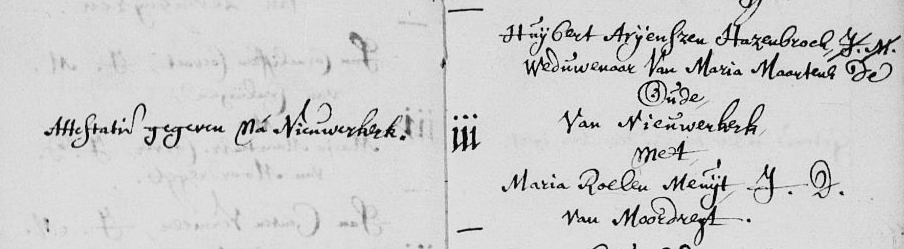 Attestatie gegeven Na Nieuwerkerk.
iii
Huijbert Arijenszen Hazenbroek, J. M.
Weduwenaar Van Maria Maartens De
Oude,
Van Nieuwerkerk,
met
Maria Roelen Meuijt, J. D.
Van Moordregt.